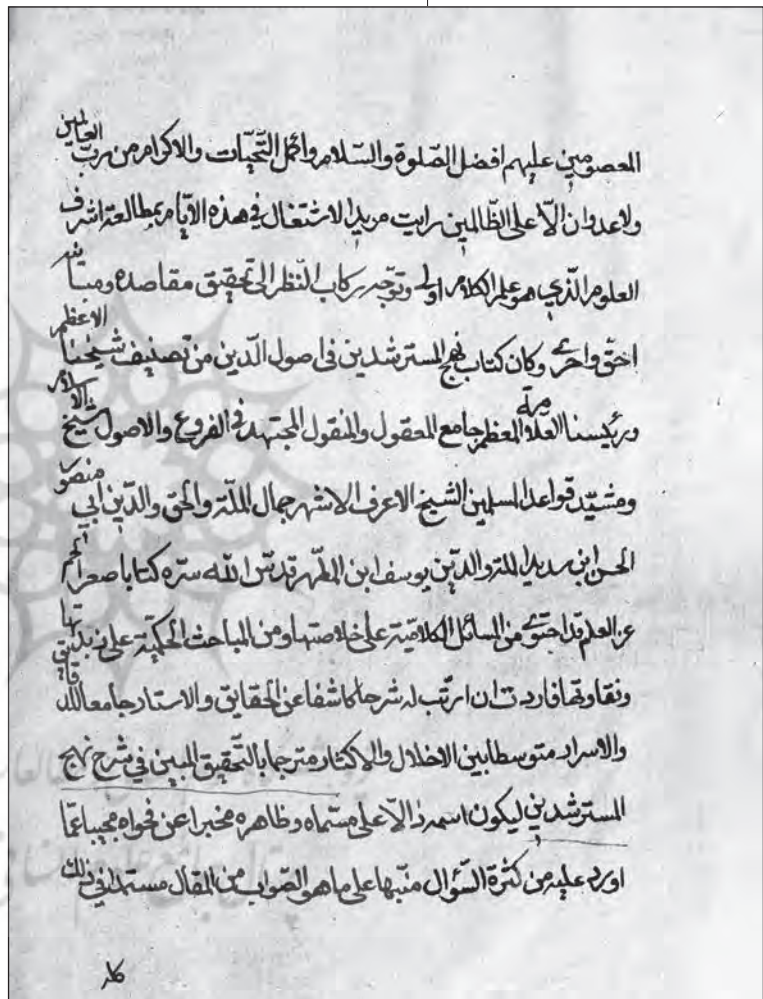 المعصومين عليهم افضل الصّلوة والسّلام واكمل التّحيّات والاكرام من ربّ العالمين
ولا عدوان الّا على الظّالمين رايت مريد الاشتغال في هذه الايّام بمطالعة اشرف
العلوم الّذي هو علم الكلام اولى وتوجّه ركاب النّظر الى تحقيق مقاصده ومباينه
احقّ واحرى وكان كتاب نهج المسترشدين في اصول الدّين من تصنيف شيخنا الاعظم
ورئيسنا العلّامة المعظم جامع المعقول والمنقول المجتهد في الفروع والاصول شيخ الاسلام
ومشيّد قواعد المسلمين الشيخ الاعرف الاشهر جمال الملّة والحق والدّين ابي منصور
الحسن ابن سديد الملة والدّين يوسف ابن المطّهر قدّس اللّه سرّه كتابا صغر الحجم
عز العلم قد احتوى من المسائل الكلاميّة على خلاصتها ومن المباحث الحكميّة على زبدتها
ونقاوتها فاردت ان ارتّب له شرحا كاشفا عن الحقايق والاستار جامعا للدقايق
والاسرار متوسطا بين الاخلال والاكثار مترجما بالتّحقيق المبين في شرح نهج
المسترشدين ليكون اسمه دالّا على مسمّاه وظاهره مخبرا عن فحواه مجيبا عمّا
اورد عليه من كثرة السّؤال منبّها على ما هو الصّواب من المقال مستمدا في ذلك
كله